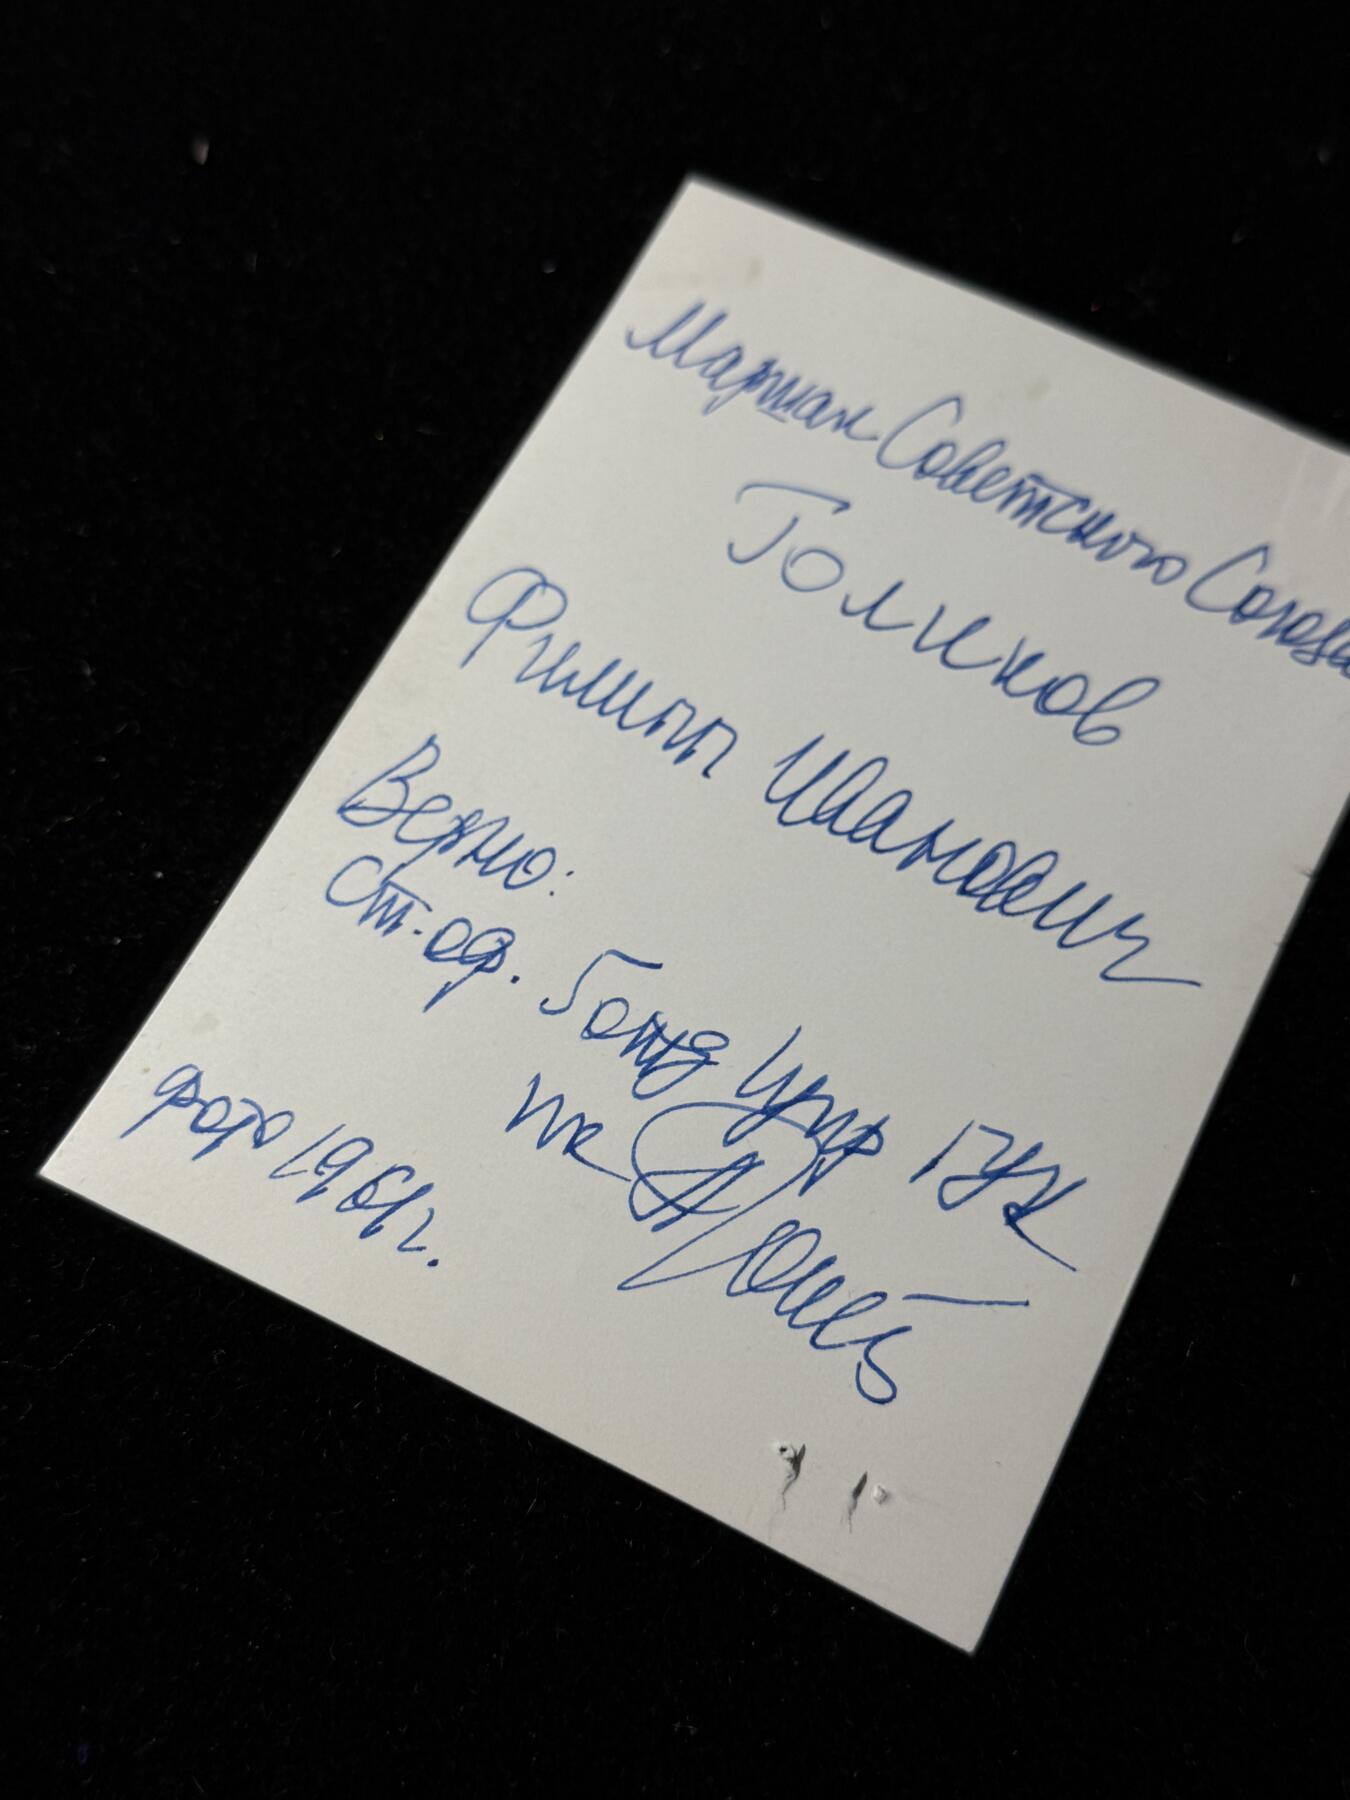 Маршал Советского Союза
Голиков
Филипп Иванович
Верно:
Ст. оф.
ГУК
фото 1961г.